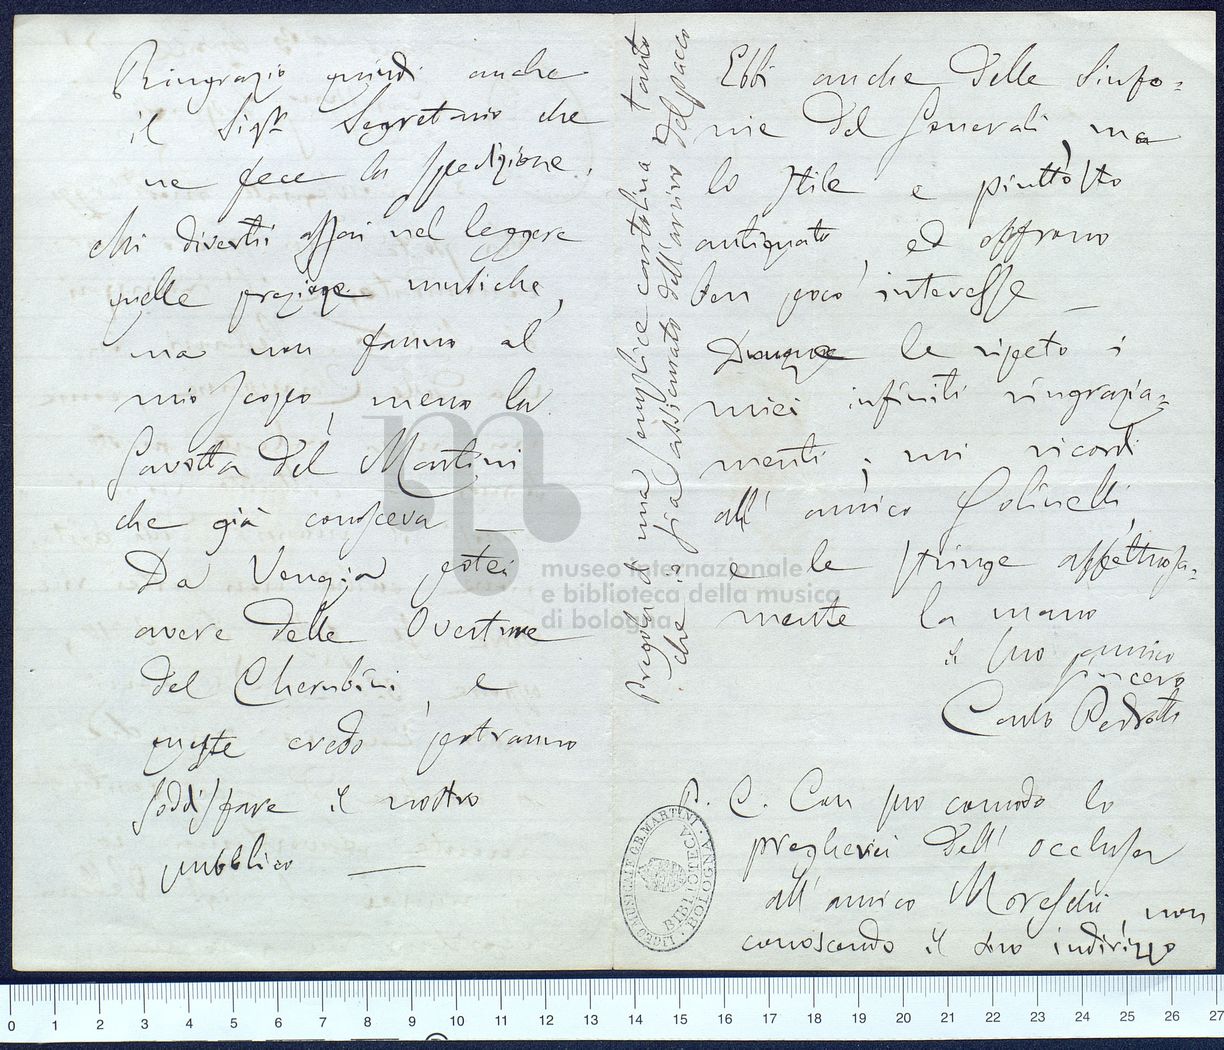 Ringrazio quindi anche
il Sigr Segretario che
ne fece la spedizione,
chi divertii assai nel leggere
quelle preziose musiche,
ma non fanno al
mio scopo, meno la
Gavotta del Martini
che già conosceva —
Da Venezia potei
avere delle Overture
del Cherubini, e
queste credo potranno
soddisfare il nostro
pubblico —
Ebbi anche delle Sinfo=
nie del Generali, ma
lo stile è piuttosto
antiquato, ed offrono
ben poco interesse —
Dunque le ripeto i
miei infiniti ringrazia=
menti, mi ricordi
all' amico Golinelli,
e le stringo affettuosa=
mente la mano
il suo amico
sincero
Carlo Pedrotti
P. C. Con suo comodo lo
pregherei dell' occlusa
all' amico Moreschi, non
conoscendo il suo indirizzo
Pregola di una semplice cartolina tanto
che io sia assicurato dell'arrivo del pacco
museo internazionale
e biblioteca della musica
di bologna
LICEO MUSICALE G.B. MARTINI · BOLOGNA ·
BIBLIOTECA
0 1 2 3 4 5 6 7 8 9 10 11 12 13 14 15 16 17 18 19 20 21 22 23 24 25 26 27